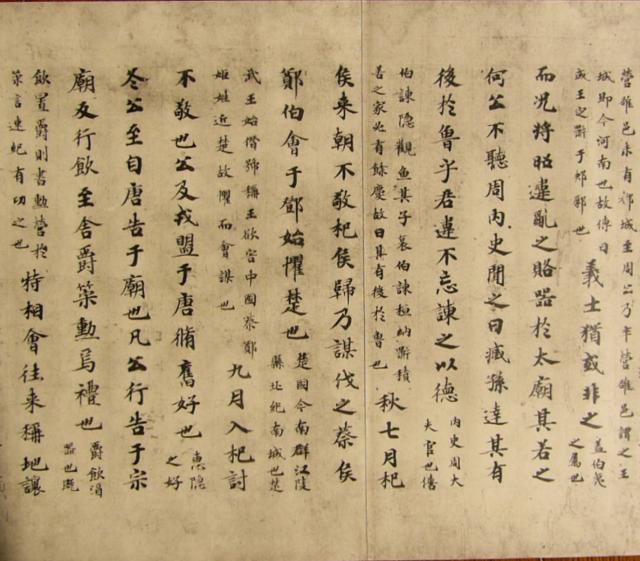 營雒邑未有都城至周公乃卒營雒邑謂之王
城即今河南也故傳曰
成王定鼎于郟鄏也
義士猶或非之
蓋伯夷
之屬也
而況將昭違亂之賂器於太廟其若之
何公不聽周內史聞之曰臧孫達其有
後於魯乎君違不忘諫之以德
內史周大
夫官也僖
伯諫隱觀魚其子哀伯諫桓納鼎積
善之家必有餘慶故曰其有後於魯也
秋七月杞
侯來朝不敬杞侯歸乃謀伐之蔡侯
鄭伯會于鄧始懼楚也
楚國今南郡江陵
縣北紀南城也楚
武王始僭號稱王欲害中國蔡鄭
姬姓近楚故懼而會謀也
九月入杞討
不敬也公及戎盟于唐脩舊好也
惠隱
之好
冬公至自唐告于廟也凡公行告于宗
廟反行飲至舍爵策勳焉禮也
爵飲酒
器也既
飲置爵則書勳勞於
策言速紀有功之也
特相會往來稱地讓